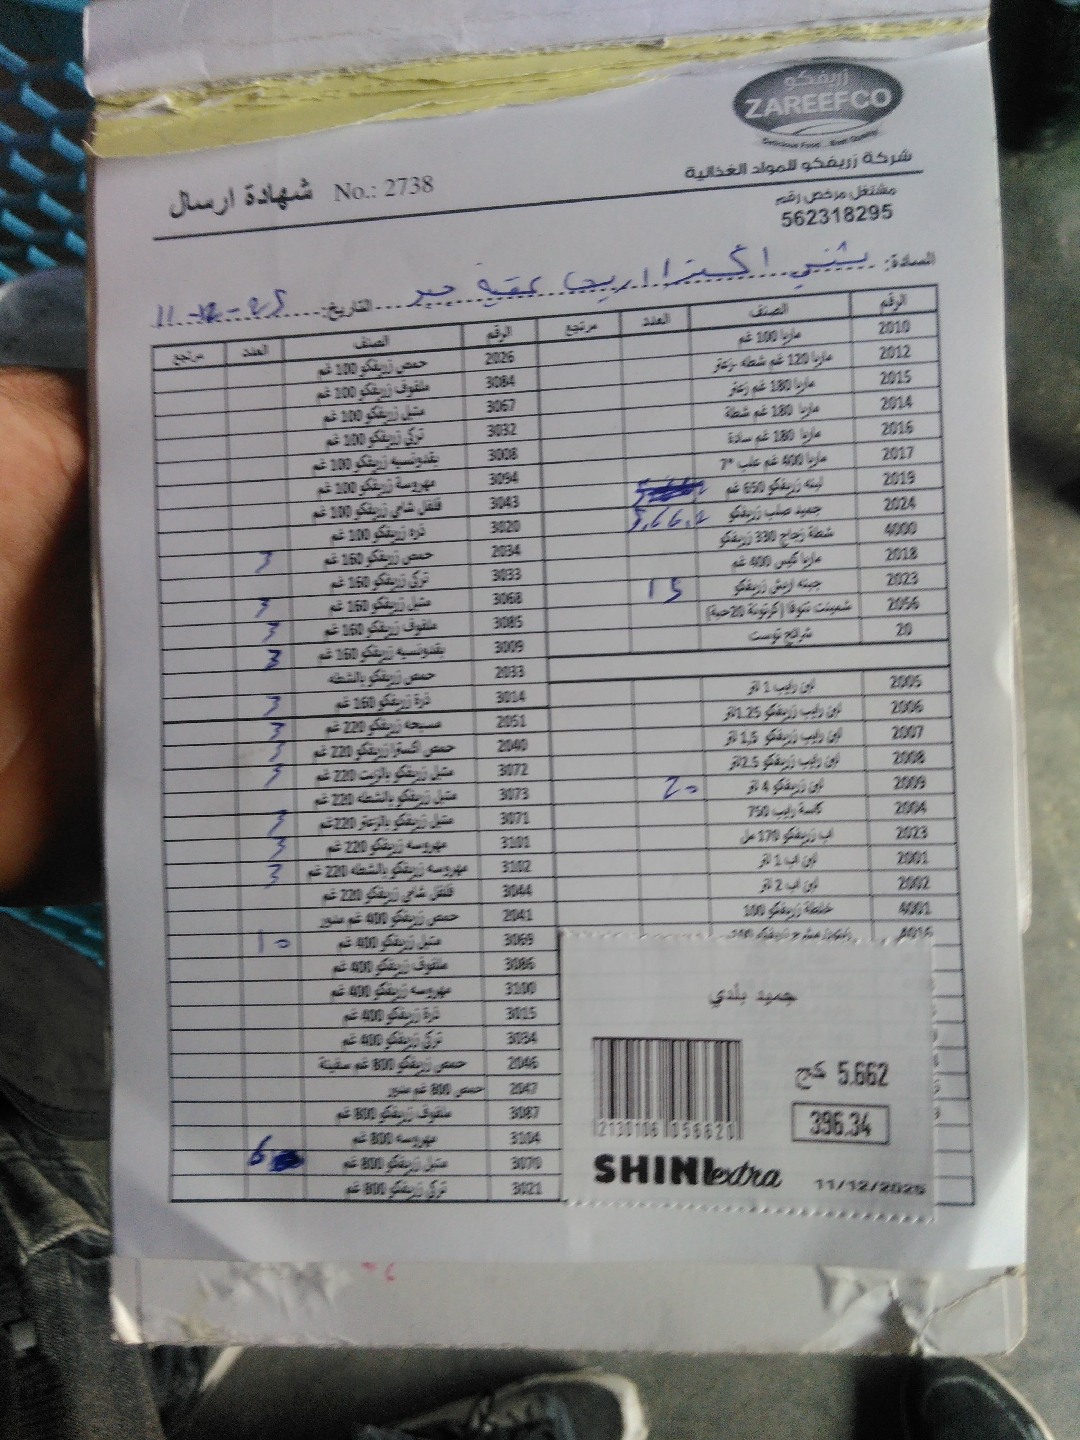 زريفكو
ZAREEFCO
Delicious Food .. Best Quality
شركة زريفكو للمواد الغذائية
مشتغل مرخص رقم
562318295
شهادة ارسال No.: 2738
السادة: شني اكسترا اريحا عقبة جبر التاريخ: 11-12-25
الرقم الصنف العدد مرتجع
2010 ماريا 100 غم
2012 ماريا 120 غم شطه -زعتر
2015 ماريا 180 غم زعتر
2014 ماريا 180 غم شطة
2016 ماريا 180 غم سادة
2017 ماريا 400 غم علب *7
2019 لبنه زريفكو 650 غم
2024 جميد صلب زريفكو 5,66,2
4000 شطة زجاج 330 زريفكو
2018 ماريا كيس 400 غم
2023 جبنه ارمش زريفكو 15
2056 شمينت تنوفا (كرتونة 20حبة)
20 شرائح توست
2005 لبن رايب 1 لتر
2006 لبن رايب زريفكو 1.25لتر
2007 لبن رايب زريفكو 1,5 لتر
2008 لبن رايب زريفكو 2.5لتر
2009 لبن زريفكو 4 لتر 20
2004 كاسة رايب 750
2023 اب زريفكو 170 مل
2001 لبن اب 1 لتر
2002 لبن اب 2 لتر
4001 خلطة زريفكو 100
الرقم الصنف العدد مرتجع
2026 حمص زريفكو 100 غم
3084 ملفوف زريفكو 100 غم
3067 متبل زريفكو 100 غم
3032 تركي زريفكو 100 غم
3008 بقدونسيه زريفكو 100 غم
3094 مهروسة زريفكو 100 غم
3043 فلفل شامي زريفكو 100 غم
3020 ذره زريفكو 100 غم
2034 حمص زريفكو 160 غم 3
3033 تركي زريفكو 160 غم
3068 متبل زريفكو 160 غم 3
3085 ملفوف زريفكو 160 غم 3
3009 بقدونسيه زريفكو 160 غم 3
2033 حمص زريفكو بالشطه
3014 ذرة زريفكو 160 غم 3
2051 مسبحه زريفكو 220 غم 3
2040 حمص اكسترا زريفكو 220 غم 3
3072 متبل زريفكو بالزيت 220 غم 3
3073 متبل زريفكو بالشطه 220 غم
3071 متبل زريفكو بالزعتر 220غم 3
3101 مهروسه زريفكو 220 غم 3
3102 مهروسه زريفكو بالشطه 220 غم 3
3044 فلفل شامي زريفكو 220 غم
2041 حمص زريفكو 400 غم مدور
3069 متبل زريفكو 400 غم 10
3086 ملفوف زريفكو 400 غم
3100 مهروسه زريفكو 400 غم
3015 ذرة زريفكو 400 غم
3034 تركي زريفكو 400 غم
2046 حمص زريفكو 800 غم سفينة
2047 حمص 800 غم مدور
3087 ملفوف زريفكو 800 غم
3104 مهروسه زريفكو 800 غم
3070 متبل زريفكو 800 غم 6
3021 تركي زريفكو 800 غم
جميد بلدي
5.662 كج
396.34
2130106 056620
SHINI extra
11/12/2025